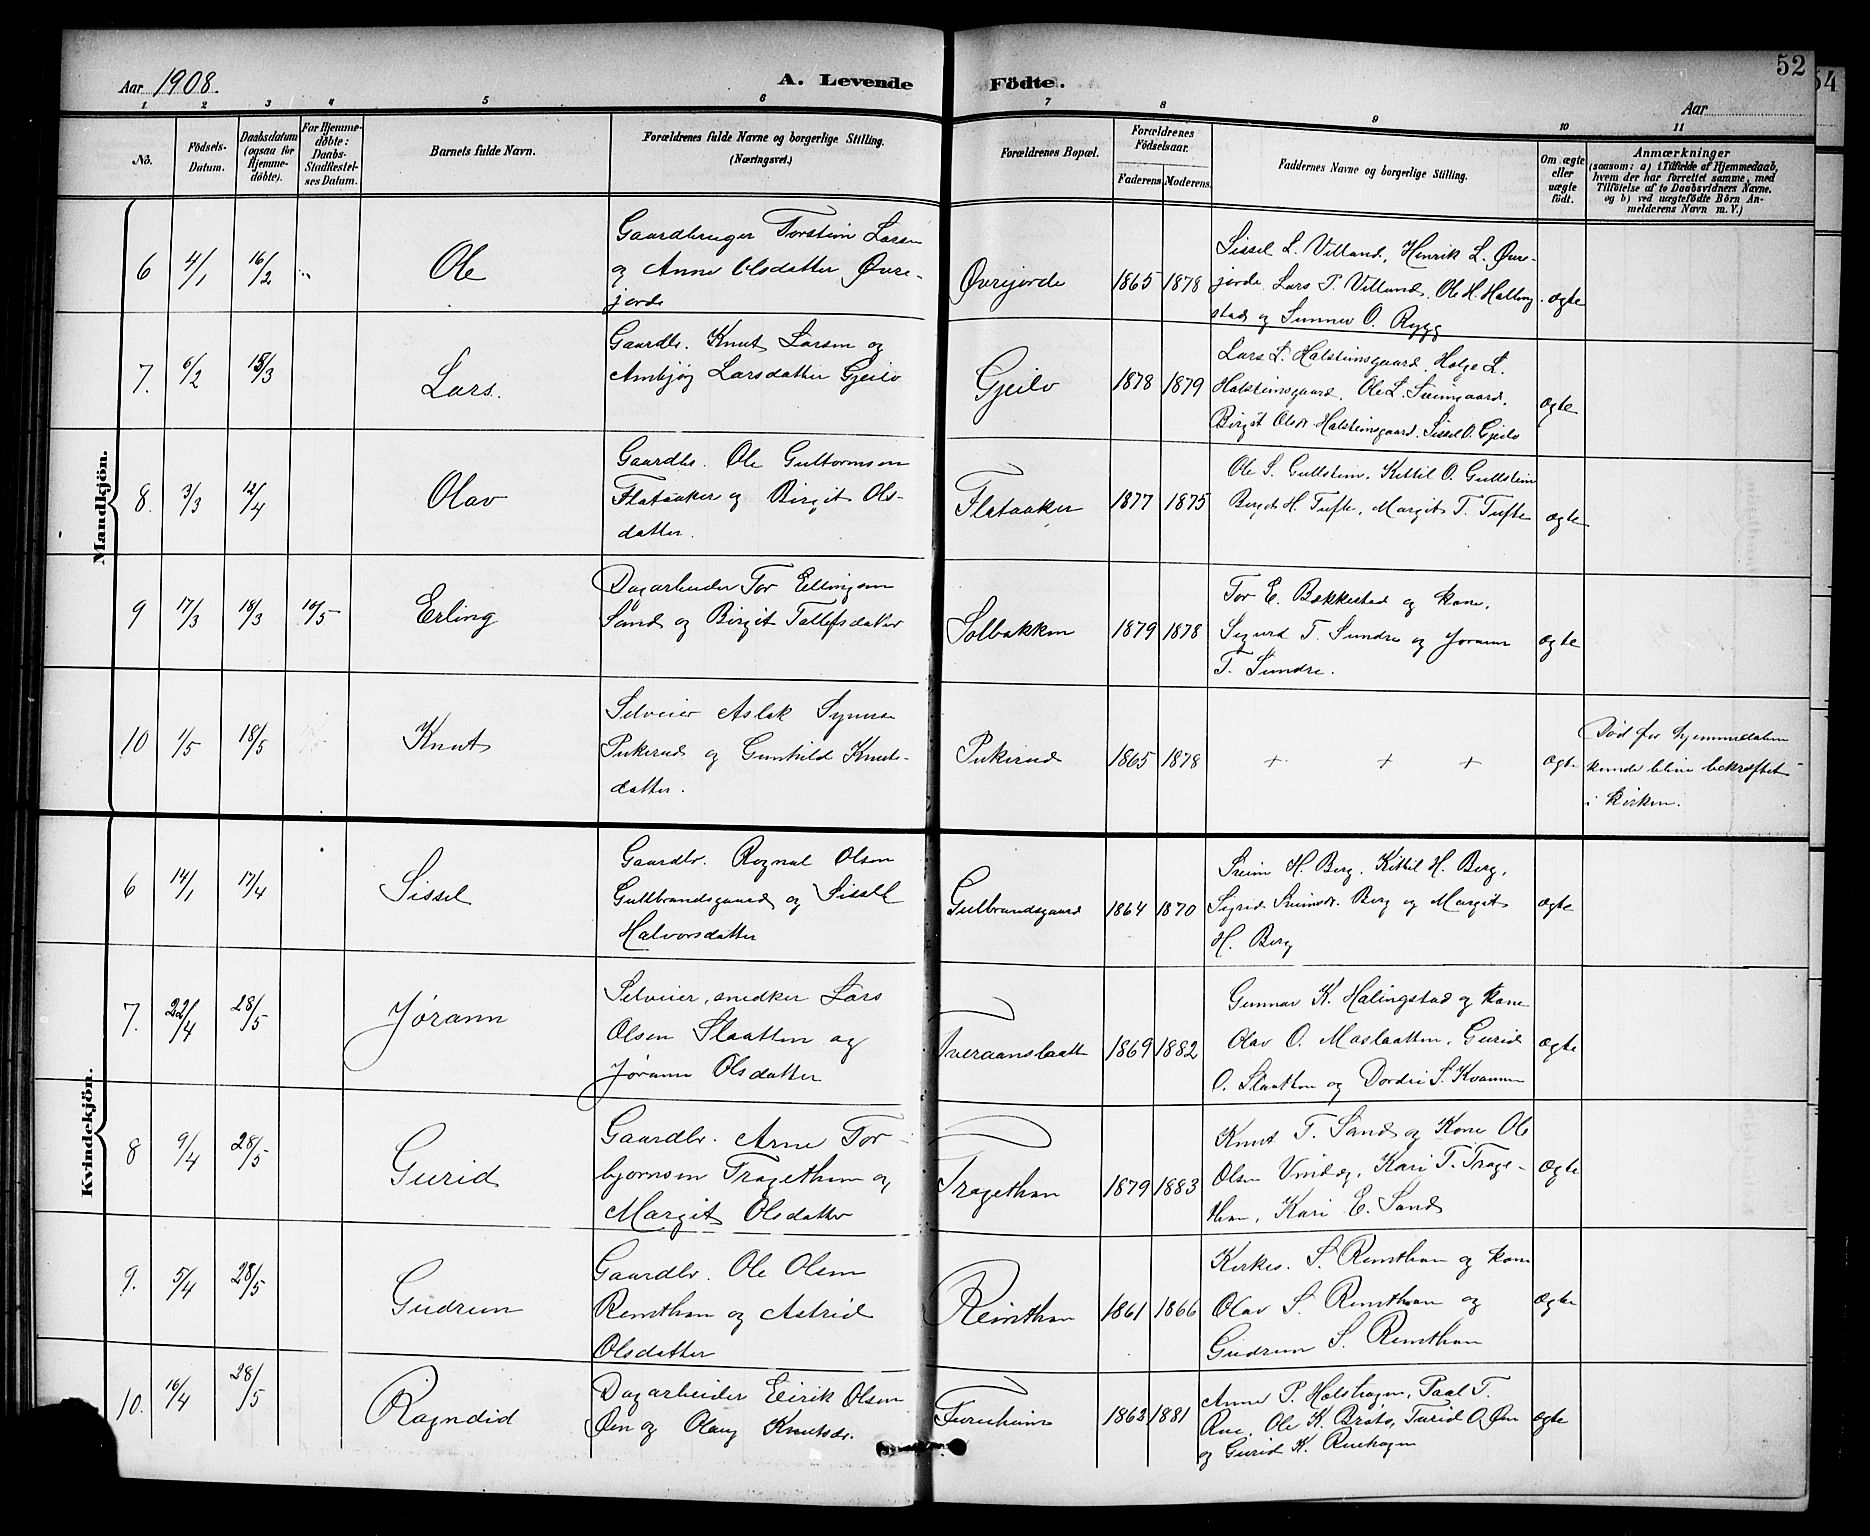 Aar 1908.
A. Levende Födte.
52
54
Aar
1 2 3 4 5 6 7 8 9 10 11
No.
Födsels-
Datum.
Daabsdatum
(ogsaa for
Hjemme-
döbte).
For Hjemme-
döbte:
Daabs-
Stadfæstel-
ses Datum.
Barnets fulde Navn.
Forældrenes fulde Navne og borgerlige Stilling.
(Næringsvei.)
Forældrenes Bopæl.
Forældrenes
Födselsaar.
Faderens
Moderens.
Faddernes Navne og borgerlige Stilling.
Om ægte
eller
uægte
født.
Anmærkninger
(saasom: a) i Tilfælde af Hjemmedaab,
hvem der har forrettet samme, med
Tilföielse af to Daabsvidners Navne.
og b) ved uægtefödte Börn An-
melderens Navn m. V.)
Mandkjön.
6
4/1
16/2
Ole
Gaardbruger Torstein Larsen
og Anne Olsdatter Øvre-
jorde
Øvrejorde
1865
1878
Sissel L. Villand, Henrik L. Øvre-
jorde. Lars T. Villand, Ole H. Halling
stad og Gunner O. Rygg
ægte
7.
6/2
15/3
Lars.
Gaardbr. Knut Larsen og
Ambjøg Larsdatter Gjeilo
Gjeilo
1878
1879
Lars L. Halsteinsgaard, Holge L.
Halsteinsgaard, Ole L. Sveingaard,
Birgit Olsdr. Halsteinsgaard, Sissel O. Gjeilo
ægte
8.
3/3
12/4
Olav
Gaardbr. Ole Guttormsen
Flataaker og Birgit Ols-
datter.
Flataaker
1877
1875
Ole S. Gullstein, Kittil O. Gullstein
Birgit H. Tufte, Margit T. Tufte
ægte
9
17/3
18/3
10/5
Erling
Dagarbeider Tor Ellingsen
Sand og Birgit Tollefsdatter
Solbakken
1879
1878
Tor E. Bækkestad og kone,
Sigurd T. Sundre og Jorann
T. Sundre.
ægte
10
1/5
18/5
Knut
Selveier Aslak Syversen
Pukerud og Gunhild Knuts-
datter.
Pukerud
1865
1878
+ + +
ægte
Død før hjemmedaaben
kunde blive bekræftet
i kirken.
Kvindekjön.
6
14/1
17/4
Sissel
Gaardbr. Rognal Olsen
Gulbrandsgaard og Sissel
Halvorsdatter
Gulbrandsgaard
1864
1870
Svein H. Berg, Kittil H. Berg,
Sigrid Sveinsdr. Berg og Margit
H. Berg
ægte
7.
22/4
28/5
Jørann
Selveier, snedker Lars
Olsen Slaatten og
Jørann Olsdatter
Tveraanslaatt
1869
1882
Gunnar K. Halingstad og kone
Olav O. Moslaatten, Gurid
O. Slaatten og Dordei S. Kvammen
ægte
8
9/4
28/5
Gurid
Gaardbr. Arne Tor-
bjørnsen Tragethon og
Margit Olsdatter
Tragethon
1879
1883
Knut T. Sand og Kone Ole
Olsen Vindeg, Kari T. Trage-
thon, Kari E. Sand
ægte
9.
5/4
28/5
Gudrun
Gaardbr. Ole Olsen
Reinthon og Astrid
Olsdatter
Reinthon
1861
1866
Kirkes. S. Reinthon og kone
Olav S. Reinthon og
Gudrun S. Reinthon
ægte
10.
16/4
28/5
Ragndid
Dagarbeider Eirik Olsen
Øen og Olaug Knutsdr.
Fureheim
1863
1881
Anne P. Holshagen, Paal T.
Rue, Ole K. Bråto, Turid O. Øen
og Gurid K. Ruehagen
ægte